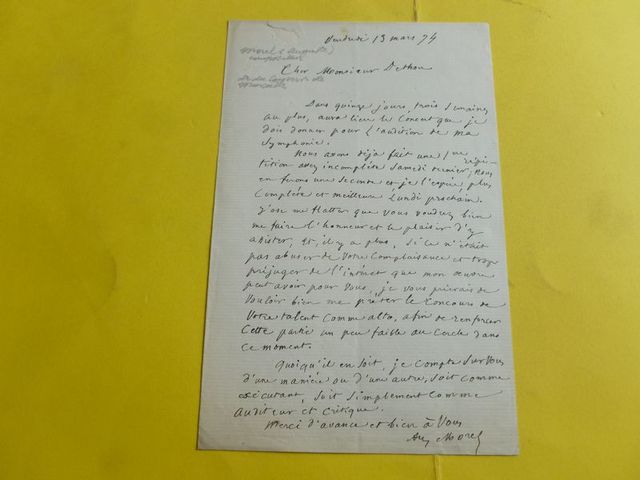 Vendredi 13 mars 74
Morel (Auguste)
compositeur
de
Marseille
Cher Monsieur
Dans quinze jours, trois semaines
au plus, aura lieu le Concert que je
dois donner pour l'audition de ma
Symphonie.
Nous avons déjà fait une 1re répé-
tition assez incomplète samedi dernier; nous
en ferons une seconde et je l'espère, plus
Complète et meilleure Lundi prochain.
J'ose me flatter que vous voudrez bien
me faire l'honneur et le plaisir d'y
assister, et, il y a plus, si ce n'était
pas abuser de votre Complaisance et trop
préjuger de l'intérêt que mon œuvre
peut avoir pour vous, je vous prierais de
vouloir bien me prêter le Concours de
votre talent comme alto, afin de renforcer
Cette partie un peu faible au Cercle dans
ce moment.
Quoiqu'il en soit, je compte sur vous
d'une manière ou d'une autre, soit comme
exécutant, soit simplement comme
auditeur et critique.
Merci d'avance et bien à Vous
Aug Morel